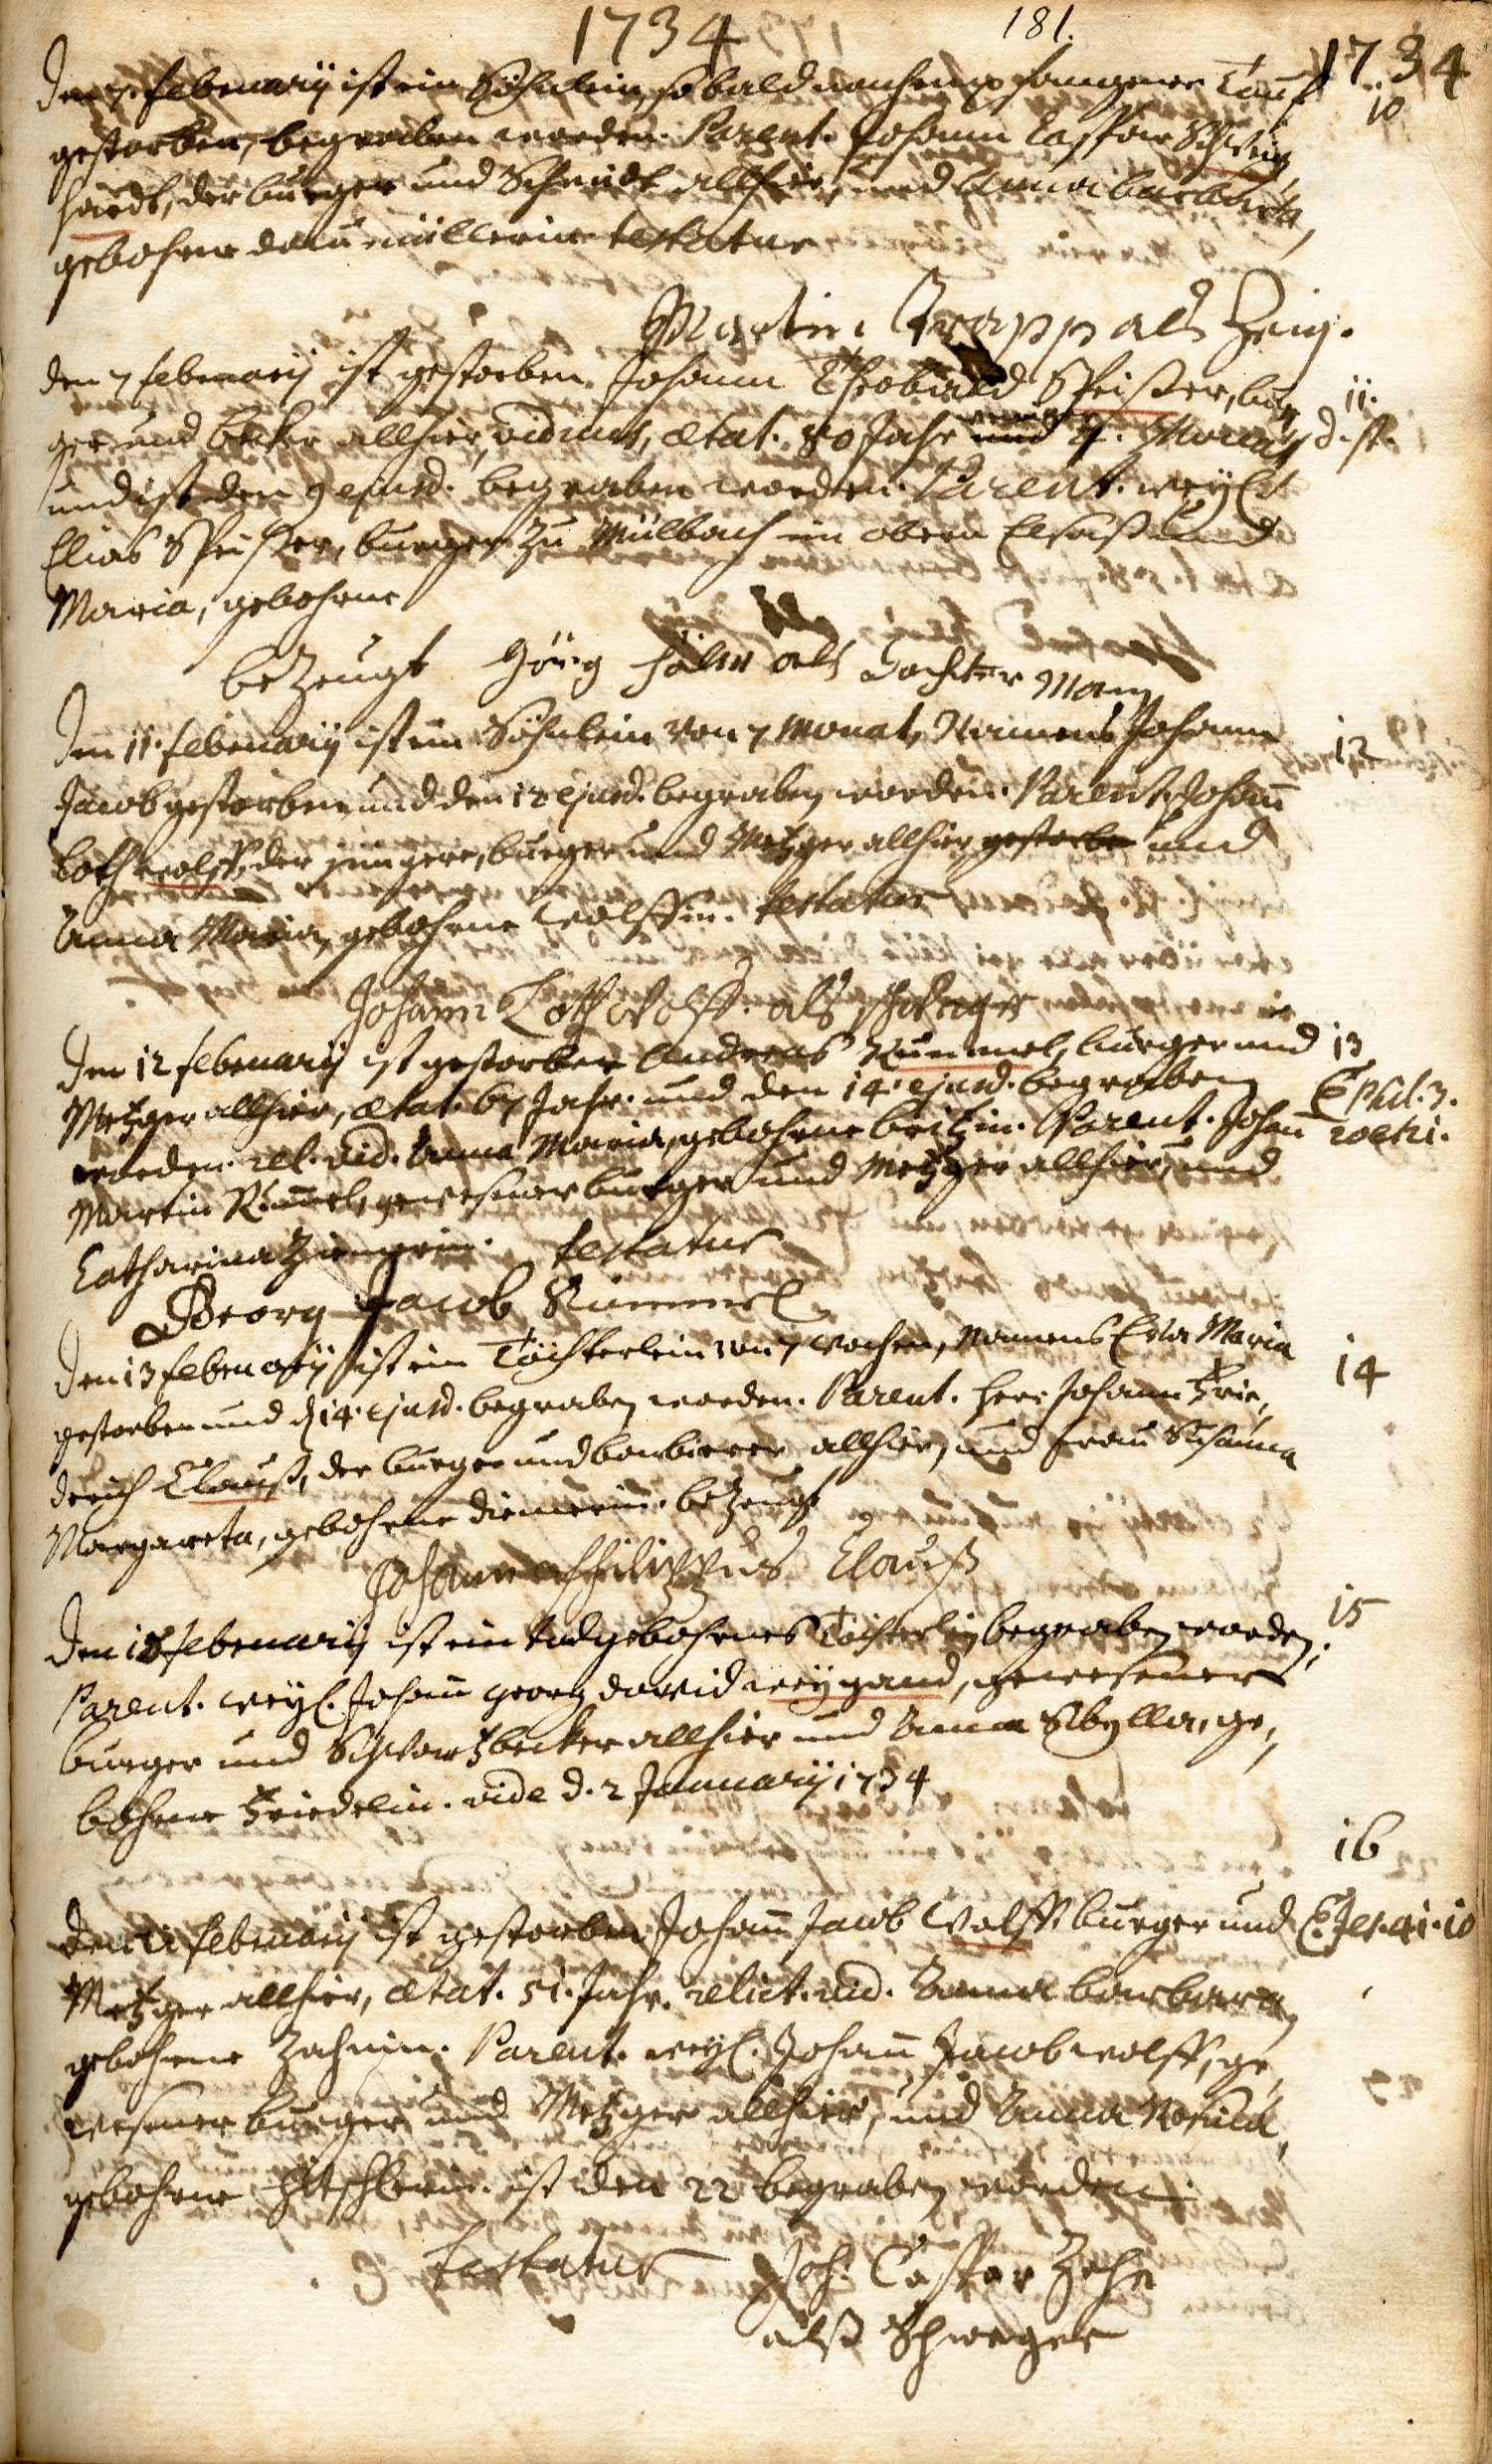 1734
181.
1734
den 7. februarij ist ein Söhnlein, so bald nach empfangener Tauf
10
gestorben, begraben worden. Parent. Johann Caspar Schwing,
hardt, der burger und Schmidt allhier, und Anna barbara,
gebohrne testatur
Martin Trapp als Zeug.
den 7 februarij ist gestorben Johann Theobald Pfister, bur,
11.
ger und becker allhier, viduus, ætat. 80 Jahr weniger 4. Monath
d. st.
und ist den 9 ejusd. begraben worden. Parent. weyl.
Elias Pfister, burger zu Mülbach im obern Elsaß und
Maria, gebohrne
bezeugt Görg als Dochter Man
den 11. februarij ist ein Söhnlein von 7 Monat, Namens Johann
12
Jacob gestorben und den 12 ejusd. begraben worden. Parent. Johann
Loth wolff, der jüngere, burger und Metzger allhier gestorbe und
Anna Maria, gebohrne wolffin. testatur
Johann Loth Wolff. als
den 12 februarij ist gestorben Andreas Kümmel, burger und
13
Metzger allhier, ætat. 67 Jahr. und den 14. ejusd. begraben
E Phil. 3.
worden. rel. vid. Anna Maria, gebohrne britzin. Parent. Johann
20 et 21.
Martin Kümmel, gewesener burger und Metzger allhier, und
Catharina testatur
Georg Jacob Kümmel
den 13 februarij ist ein Töchterlein von 7 wochen, Namens Eva Maria
14
gestorben und d 14. ejusd. begraben worden. Parent. Herr Johann Frie,
derich Clauß, der burger und barbierer allhier, und Frau Susanna
Margareta, gebohrne Diemerin. bezeugt
Johann Philippus Clauß
den 18 februarij ist ein todgebohrnes Töchterlein begraben worden.
15
Parent. weyl. Johann georg david weygand, gewesener
burger und Schwartzbecker allhier und Anna Sibylla, ge,
bohrne Friedelin. vide d. 2 Januarij 1734
16
den 21 februarij ist gestorben Johann Jacob Wolff burger und
E. Jes. 41. 10
Metzger allhier, ætat. 51. Jahr. relict. vid. Anna barbara,
gebohrne Zehnin. Parent. weyl. Johann Jacob wolff, ge,
wesener burger und Metzger allhier, und Anna Rosina,
gebohrne ist den 22 begraben worden.
testatur Joh. Caspar Zehn
alß Schwager